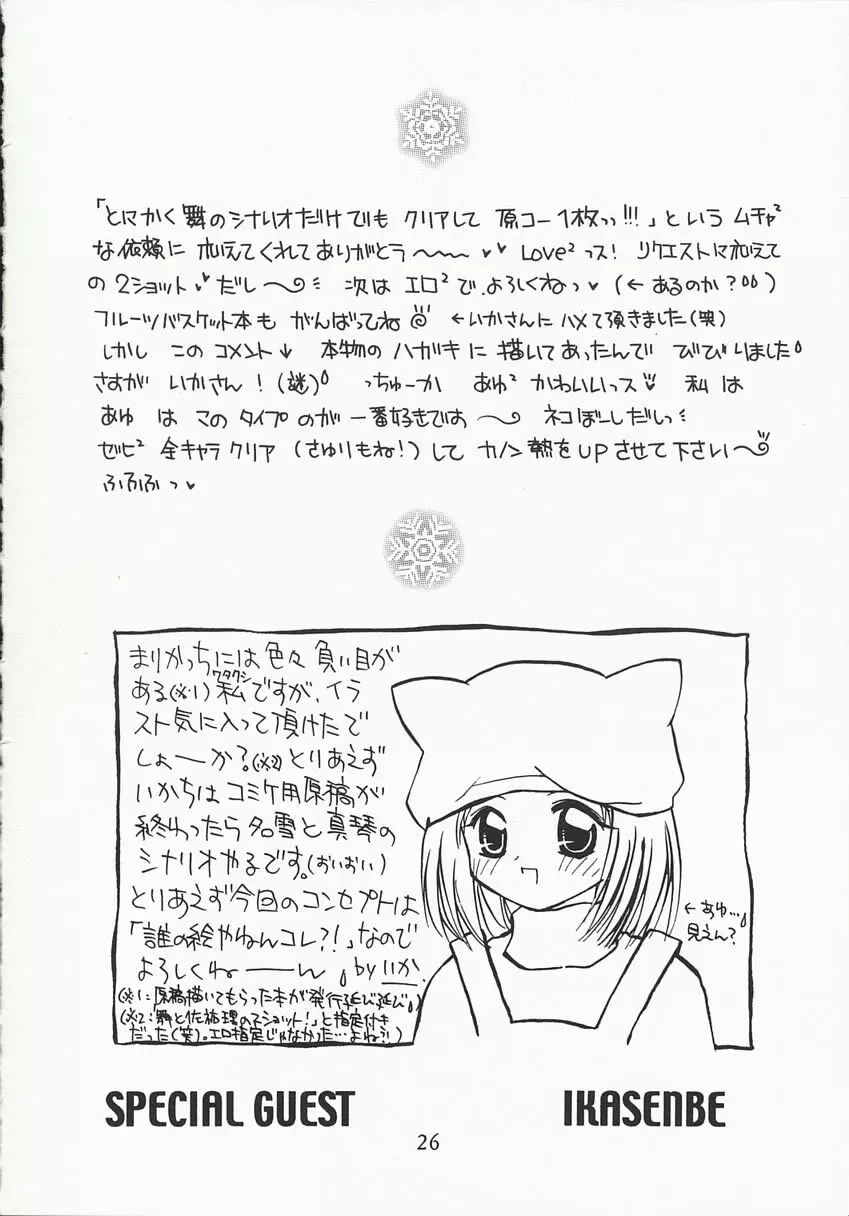 「とにかく舞のシナリオだけでも クリアして 原コー1枚っっ!!!」という ムチャ²
な依頼に 応えてくれてありがとう〜〜〜♥♥ Love²っス! リクエストに応えて
の2ショット♥だし〜 次は エロ²で、よろしくねっ♥(←あるのか?)
フルーツバスケット本も がんばってね ←いかさんにハメて頂きました(笑)
しかし このコメント↓ 本物のハガキに描いてあったんで びびりました
さすが いかさん!(謎) っちゅーか あゆ² かわいいっス♥ 私は
あゆ は このタイプのが 一番好きです〜 ネコぼーしだしっ
ゼヒ² 全キャラクリア (さゆりもね!)して カノン熱をUPさせて下さい〜
ふふふっ♥
まりかっちには色々負い目が
ある(※1)私(ワタクシ)ですが、イラ
スト気に入って頂けたで
しょーか?(※2)とりあえず
いかちはコミケ用原稿が
終わったら名雪と真琴の
シナリオやるです。(おいおい)
とりあえず今回のコンセプトは
「誰の絵やねんコレ?!」なので
よろしくねーーん by いか
(※1:原稿描いてもらった本が発行延び延び)
(※2:舞と佐祐理の2ショット!」と指定付き
だった(笑)。エロ指定じゃなかった…よね?!)
←あゆ…
見えん?
SPECIAL GUEST IKASENBE
26